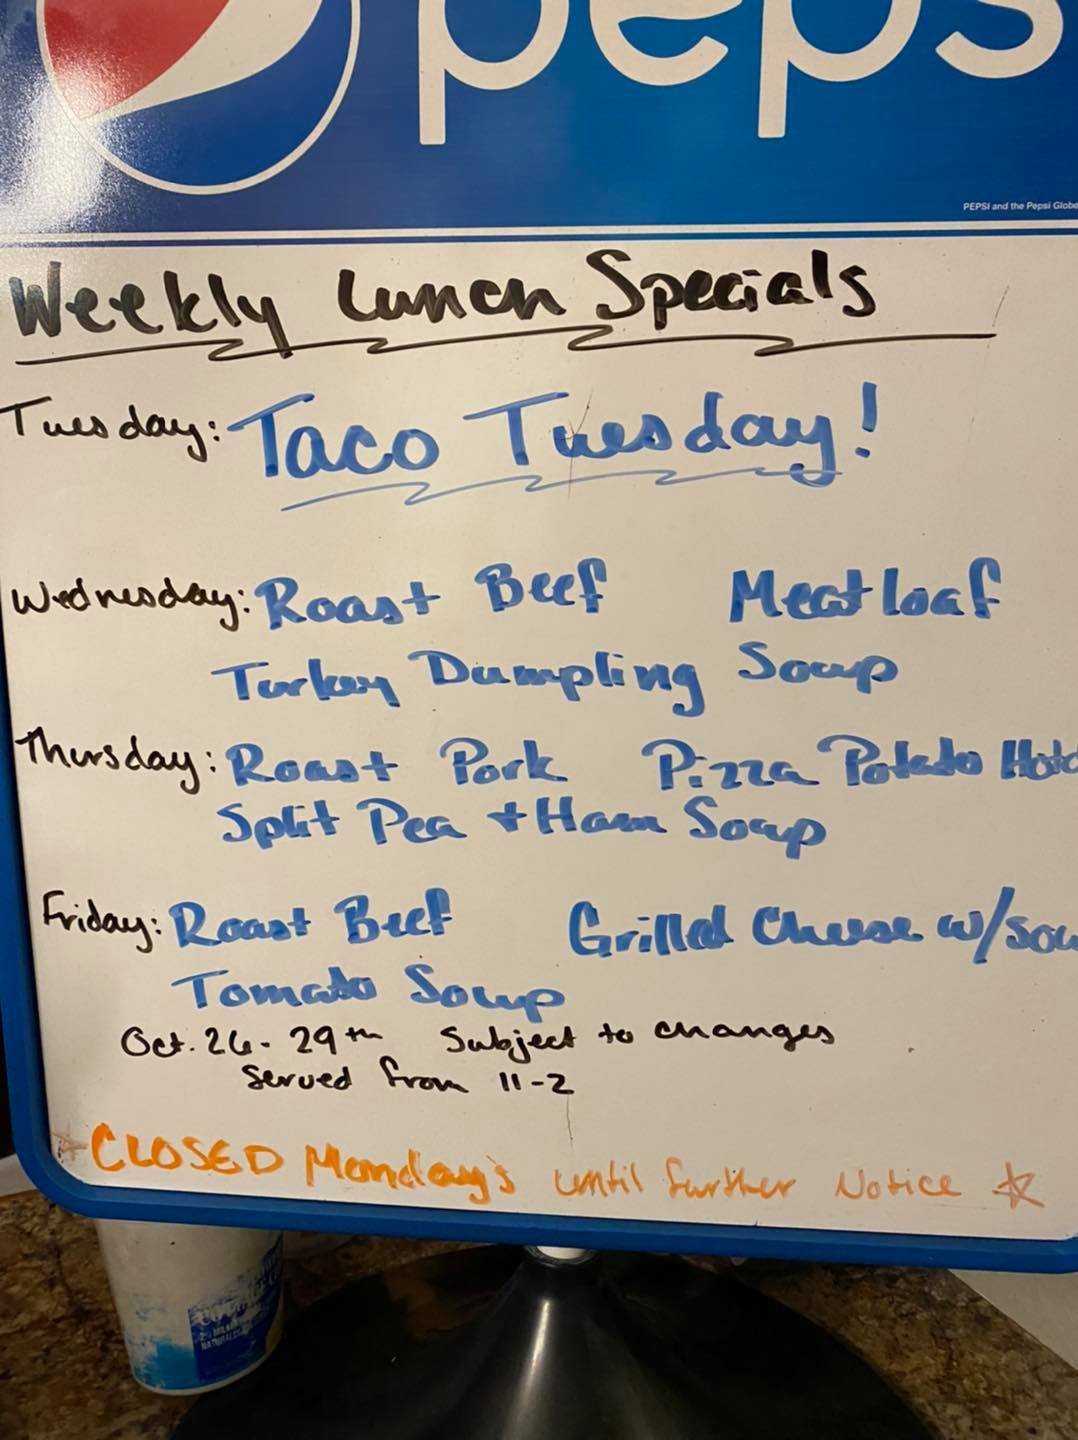 peps
PEPSI and the Pepsi Globe
Weekly Lunch Specials
Tuesday: Taco Tuesday!
Wednesday: Roast Beef Meatloaf
Turkey Dumpling Soup
Thursday: Roast Pork Pizza Potato Hotd
Split Pea + Ham Soup
Friday: Roast Beef Grilled Cheese w/sou
Tomato Soup
Oct. 26 - 29th Subject to changes
Served from 11-2
CLOSED Monday's until further Notice